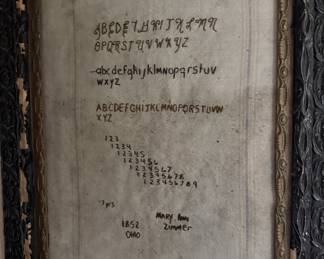 ABCDEFGHIJKLMN
OPQRSTUVWXYZ
abcdefghijklmnopqrstuv
wxyz
ABCDEFGHIJKLMNOPQRSTUVW
XYZ
123
1234
12345
123456
1234567
12345678
123456789
7 yrs
1852
OHIO
MARY. Ann
Zimmer